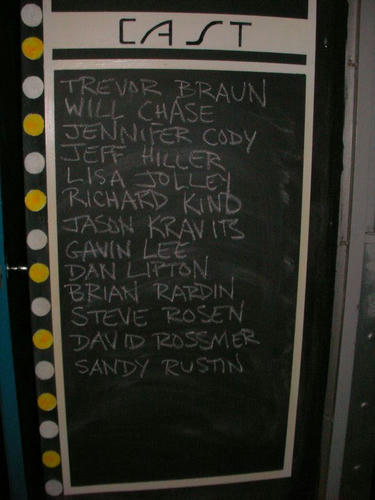 CAST
TREVOR BRAUN
WILL CHASE
JENNIFER CODY
JEFF HILLER
LISA JOLLEY
RICHARD KIND
JASON KRAVITS
GAVIN LEE
DAN LIPTON
BRIAN RARDIN
STEVE ROSEN
DAVID ROSSMER
SANDY RUSTIN